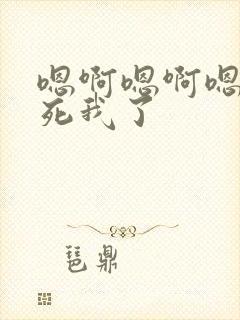 嗯啊嗯啊嗯
死我了
琶鼎